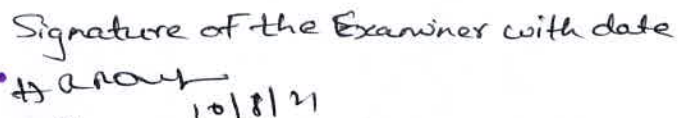 Signature of the Examiner with date
10/8/21